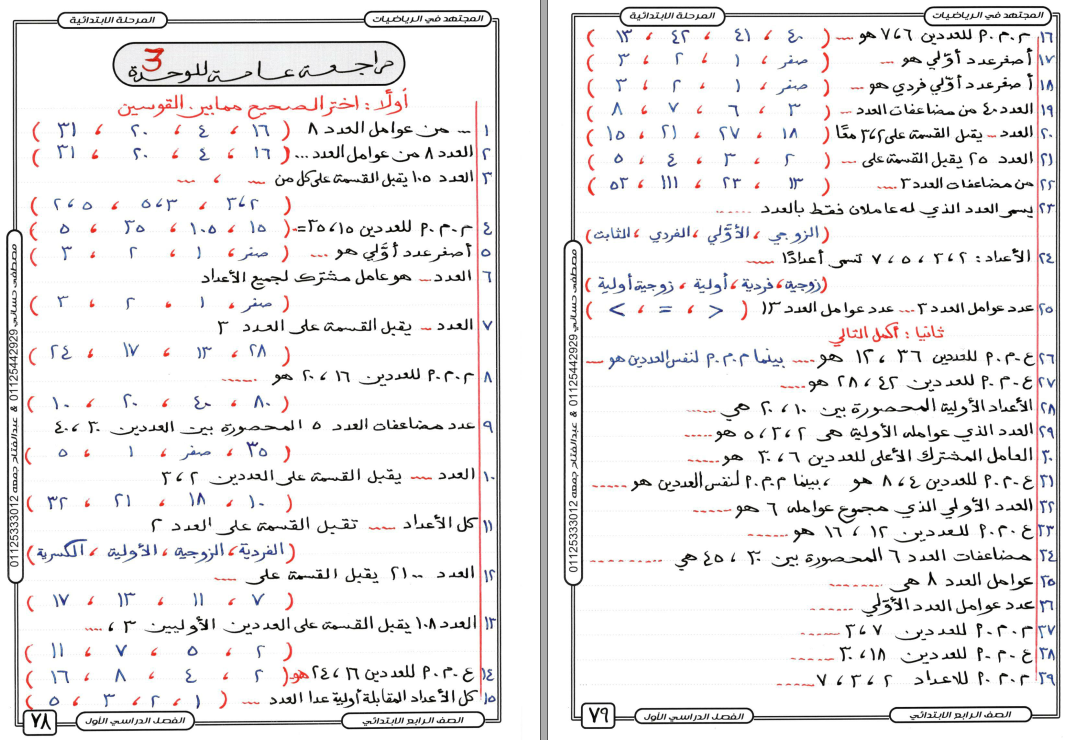 المجتهد في الرياضيات
المرحلة الابتدائية
مراجعة عامة للوحدة 3
أولًا : اختر الصحيح ممابين القوسين
١ ... من عوامل العدد ٨ ( ١٦ ، ٤ ، ٢٠ ، ٣١ )
٢ العدد ٨ من عوامل العدد ... ( ١٦ ، ٤ ، ٢٠ ، ٣١ )
٣ العدد ١٠٥ يقبل القسمة على كل من ... ، ...
( ٣،٢ ، ٥،٣ ، ٢،٥ )
٤ م.م.م للعددين ١٥ ، ٣٥ = .. ( ١٥ ، ١٠٥ ، ٣٥ ، ٥ )
٥ أصغر عدد أوّلي هو ... ( صفر ، ١ ، ٢ ، ٣ )
٦ العدد ... هو عامل مشترك لجميع الأعداد
( صفر ، ١ ، ٢ ، ٣ )
٧ العدد ... يقبل القسمة على العدد ٣
( ٢٨ ، ١٣ ، ١٧ ، ٢٤ )
٨ م.م.م للعددين ١٦ ، ٢٠ هو ......
( ٨٠ ، ٤٠ ، ٢٠ ، ١٠ )
٩ عدد مضاعفات العدد ٥ المحصورة بين العددين ٣٠ ، ٤٠
( ٣٥ ، صفر ، ١ ، ٥ )
١٠ العدد .... يقبل القسمة على العددين ٢ ، ٣
( ١٠ ، ١٨ ، ٢١ ، ٣٢ )
١١ كل الأعداد .... تقبل القسمة على العدد ٢
( الفردية ، الزوجية ، الأولية ، الكسرية )
١٢ العدد ٢١٠٠ يقبل القسمة على ....
( ٧ ، ١١ ، ١٣ ، ١٧ )
١٣ العدد ١٠٨ يقبل القسمة على العددين الأوليين ٣ ، ....
( ٢ ، ٥ ، ٧ ، ١١ )
١٤ ع.م.م للعددين ١٦ ، ٢٤ هو ( ٢ ، ٤ ، ٨ ، ١٦ )
١٥ كل الأعداد المقابلة أولية عدا العدد ... ( ١ ، ٢ ، ٣ ، ٥ )
مصطفى حساني 01125442929 & عبدالفتاح جمعه 01125333012
الصف الرابع الابتدائي
الفصل الدراسي الأول
٧٨
المجتهد في الرياضيات
المرحلة الابتدائية
١٦ م.م.م للعددين ٦،٧ هو .... ( ٤٠ ، ٤١ ، ٤٢ ، ١٣ )
١٧ أصغر عدد أوّلي هو ... ( صفر ، ١ ، ٢ ، ٣ )
١٨ أصغر عدد أوّلي فردي هو ... ( صفر ، ١ ، ٢ ، ٣ )
١٩ العدد ٤٠ من مضاعفات العدد ... ( ٣ ، ٦ ، ٧ ، ٨ )
٢٠ العدد ... يقبل القسمة على ٢،٣ معًا ( ١٨ ، ٢٧ ، ٢١ ، ١٥ )
٢١ العدد ٢٥ يقبل القسمة على ... ( ٢ ، ٣ ، ٤ ، ٥ )
٢٢ من مضاعفات العدد ٣ .... ( ١٣ ، ٢٣ ، ١١١ ، ٥٣ )
٢٣ يسمى العدد الذي له عاملان فقط بالعدد .....
( الزوجي ، الأوّلي ، الفردي ، الثابت )
٢٤ الأعداد : ٢ ، ٣ ، ٥ ، ٧ تسمى أعدادًا .....
( زوجية ، فردية ، أولية ، زوجية أولية )
٢٥ عدد عوامل العدد ٣ ... عدد عوامل العدد ١٣ ( > ، = ، < )
ثانيا : أكمل التالي
٢٦ ع.م.م للعددين ٣٦ ، ١٢ هو .... بينما م.م.م لنفس العددين هو ....
٢٧ ع.م.م للعددين ٤٢ ، ٢٨ هو ....
٢٨ الأعداد الأولية المحصورة بين ١٠ ، ٢٠ هي .....
٢٩ العدد الذي عوامله الأولية هى ٢ ، ٣ ، ٥ هو .....
٣٠ العامل المشترك الأعلى للعددين ٦ ، ٣٠ هو .....
٣١ ع.م.م للعددين ٤ ، ٨ هو ، بينما م.م.م لنفس العددين هو ......
٣٢ العدد الأولي الذي مجموع عوامله ٦ هو ......
٣٣ ع.م.م للعددين ١٢ ، ١٦ هو ......
٣٤ مضاعفات العدد ٦ المحصورة بين ٣٠ ، ٤٥ هي ..........
٣٥ عوامل العدد ٨ هى ........
٣٦ عدد عوامل العدد الأوّلي ......
٣٧ م.م.م للعددين ٧ ، ٣ ......
٣٨ ع.م.م للعددين ١٨ ، ٣٠ ......
٣٩ م.م.م للاعداد ٢ ، ٣ ، ٧ ......
مصطفى حساني 01125442929 & عبدالفتاح جمعه 01125333012
الصف الرابع الابتدائي
الفصل الدراسي الأول
٧٩